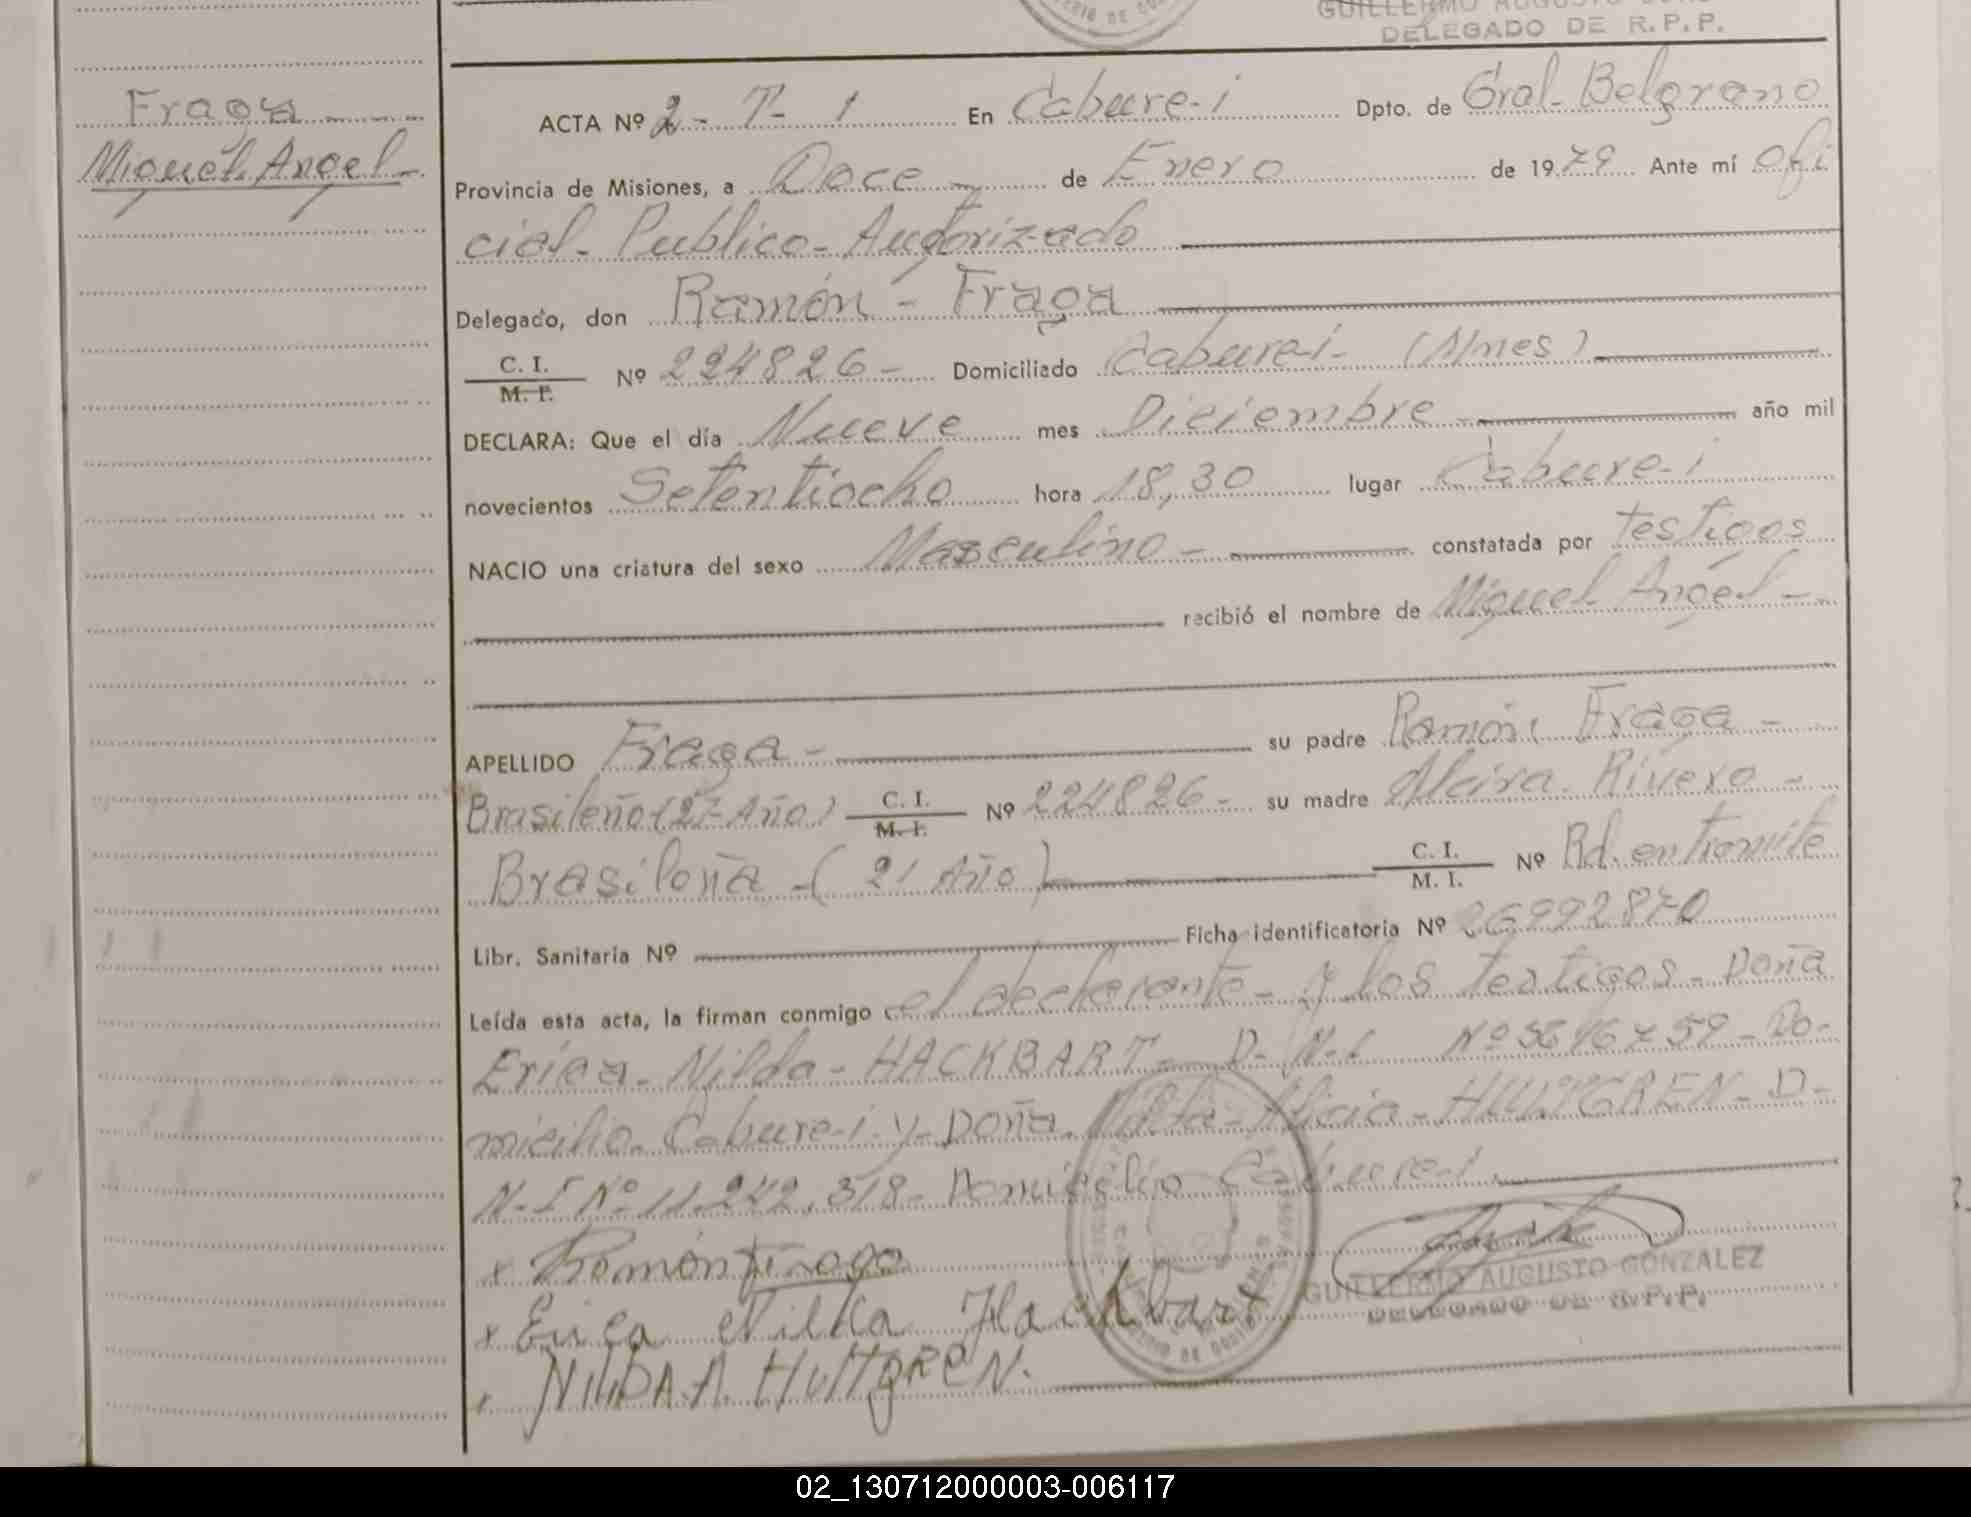 GUILLERMO AUGUSTO
DELEGADO DE R.P.P.
Fraga
Miguel Angel-
ACTA Nº 2- T- 1 En Cabure-i Dpto. de Gral- Belgrano
Provincia de Misiones, a Doce - de Enero de 1979 Ante mí Ofi
cial- Publico- Autorizado
Delegado, don Ramón - Fraga
C. I.
M. I. Nº 224826- Domiciliado Cabure-i- (Mnes)
DECLARA: Que el día Nueve mes Diciembre- año mil
novecientos Setentiocho hora 18,30 lugar Cabure-i
NACIO una criatura del sexo Masculino- constatada por testigos
recibió el nombre de Miguel Angel-
APELLIDO Fraga- su padre Ramón Fraga-
Brasileño-(27-Año) C. I.
M. I. Nº 224826- su madre Alcira- Rivero-
Brasileña-( 21 Año) C. I.
M. I. Nº Rd. en tramite
Libr. Sanitaria Nº Ficha identificatoria Nº 26992870
Leída esta acta, la firman conmigo el declarante- y los testigos- Doña
Erica- Nilda- HACKBART- D- N-I Nº 759- Do-
micilio- Cabure-i-y- Doña. Alicia- HULTGREN- D-
N-I Nº 11.242.318- Domicilio Cabure-i
x Ramón Fraga
x Erica Nilda Hackbart
NILDA.A. HULTGREN.
GUILLERMO AUGUSTO GONZALEZ
DELEGADO DE R.P.P.
02_130712000003-006117